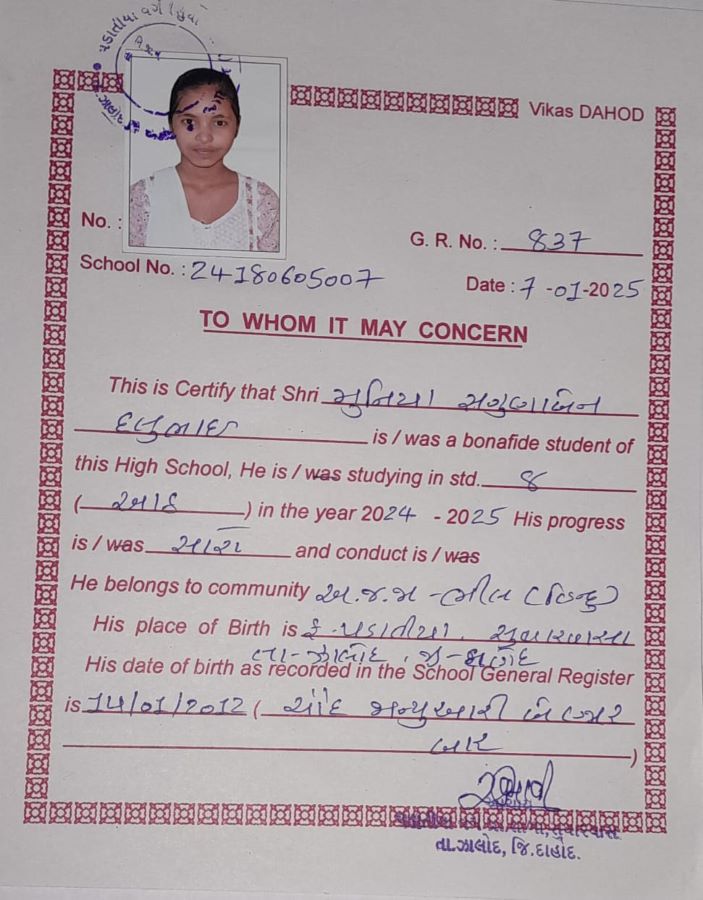 પડાતીયા વર્ગ
Vikas DAHOD
No. :
G. R. No. : 837
School No. : 24180605007
Date : 7-01-2025
TO WHOM IT MAY CONCERN
This is Certify that Shri મુનિયા
is / was a bonafide student of
this High School, He is / was studying in std. 8
(આઠ) in the year 2024 - 2025 His progress
is / was સારો and conduct is / was
He belongs to community અ.જ.જ - ભીલ (હિન્દુ)
His place of Birth is મુ. પડાતીયા, સુથારવાસા
તા- ઝાલોદ, જી- દાહોદ
His date of birth as recorded in the School General Register
is 14/01/2012 (ચૌદ જાન્યુઆરી બે હજાર
બાર)
તા.ઝાલોદ, જિ.દાહોદ.